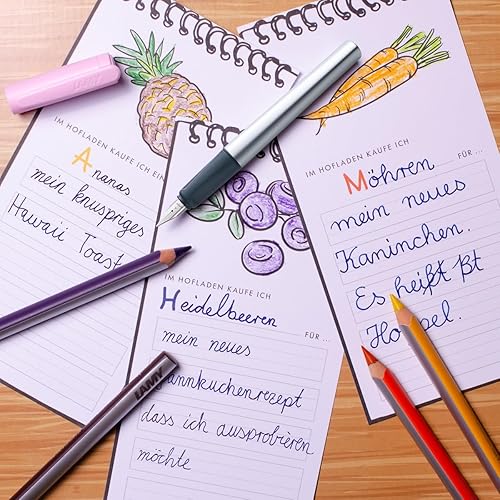 LAMY
IM HOFLADEN KAUFE ICH EIN
Ananas
mein knuspriges
Hawaii Toast
IM HOFLADEN KAUFE ICH
Heidelbeeren
FÜR ...
mein neues
annkuchenrezept
dass ich ausprobieren
möchte
IM HOFLADEN KAUFE ICH
Möhren
FÜR ...
mein neues
Kaninchen.
Es heißt
LAMY